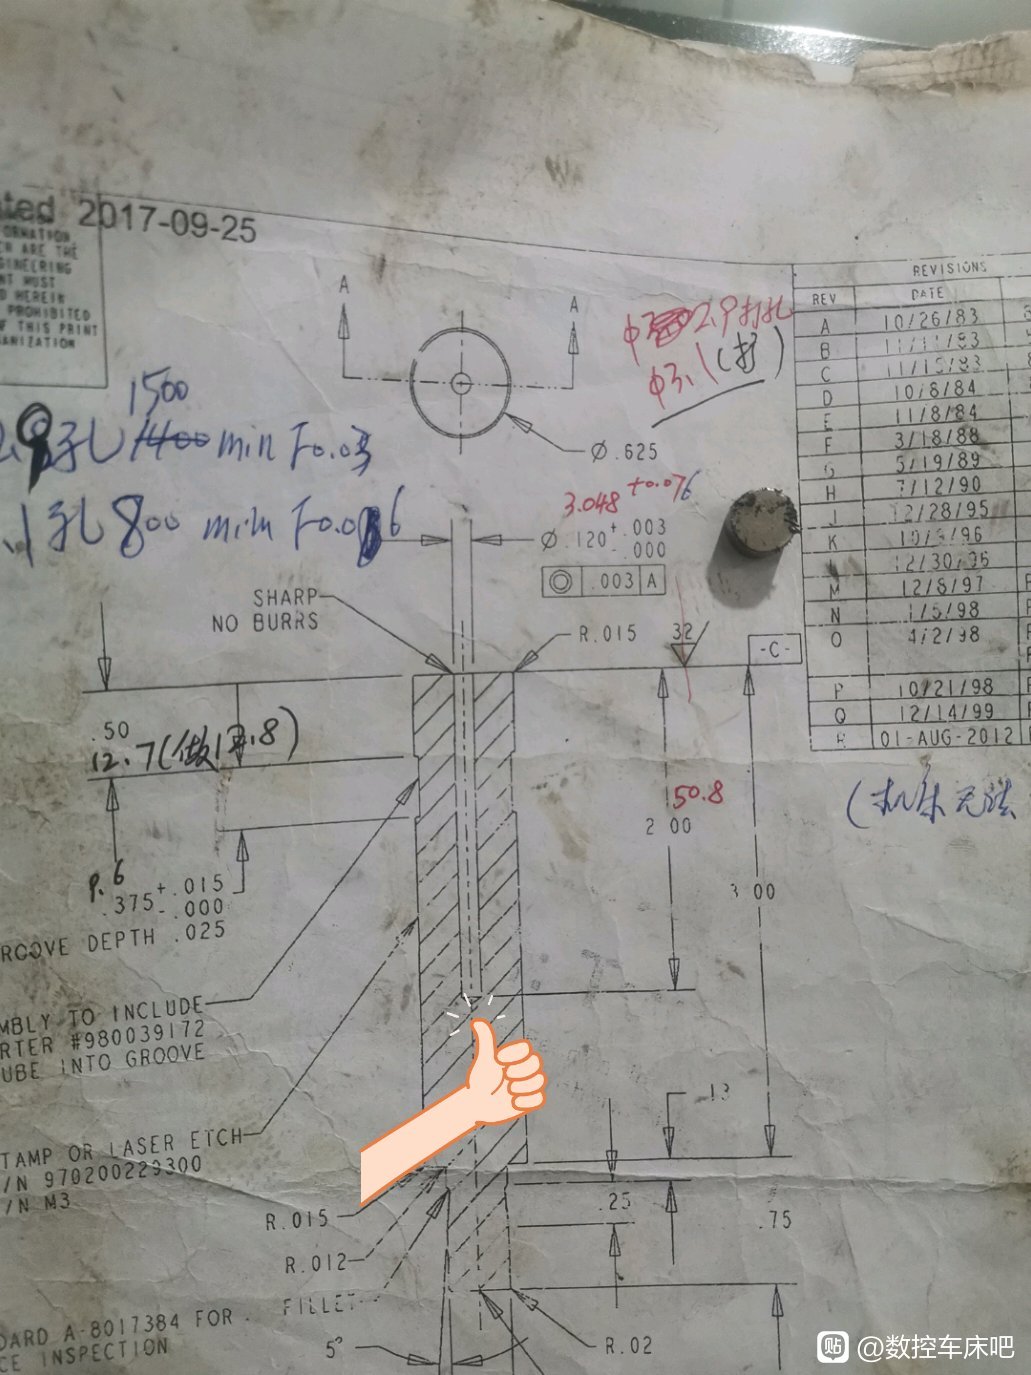 ted 2017-09-25
ORMATION
ARE THE
GINEERING
NT MUST
HEREIN
PROHIBITED
F THIS PRINT
ANIZATION
A
A
φ 2.9打孔
φ3.1(打)
REVISIONS
REV DATE
A 10/26/83
B 11/11/83
C 11/15/83
D 10/8/84
E 11/8/84
F 3/18/88
G 5/19/89
H 7/12/90
J 12/28/95
K 10/3/96
12/30/96
M 12/8/97
N 1/5/98
O 4/2/98
P 10/21/98
Q 12/14/99
R 01-AUG-2012
1500
孔 1400 min F0.03
Ø.625
3.048 +0.076
.1孔 800 min F0.06
Ø.120 +.003 -.000
◎ .003 A
SHARP
NO BURRS
R.015
32
-C-
.50
12.7(做12.8)
50.8
2.00
(机床无法
3.00
9.6
.375 +.015 -.000
ROOVE DEPTH .025
MBLY TO INCLUDE
RTER #980039172
UBE INTO GROOVE
.13
TAMP OR LASER ETCH
/N 970200229300
/N M3
.25
.75
R.015
R.012
FILLET
DARD A-8017384 FOR
CE INSPECTION
5°
R.02
贴 @数控车床吧